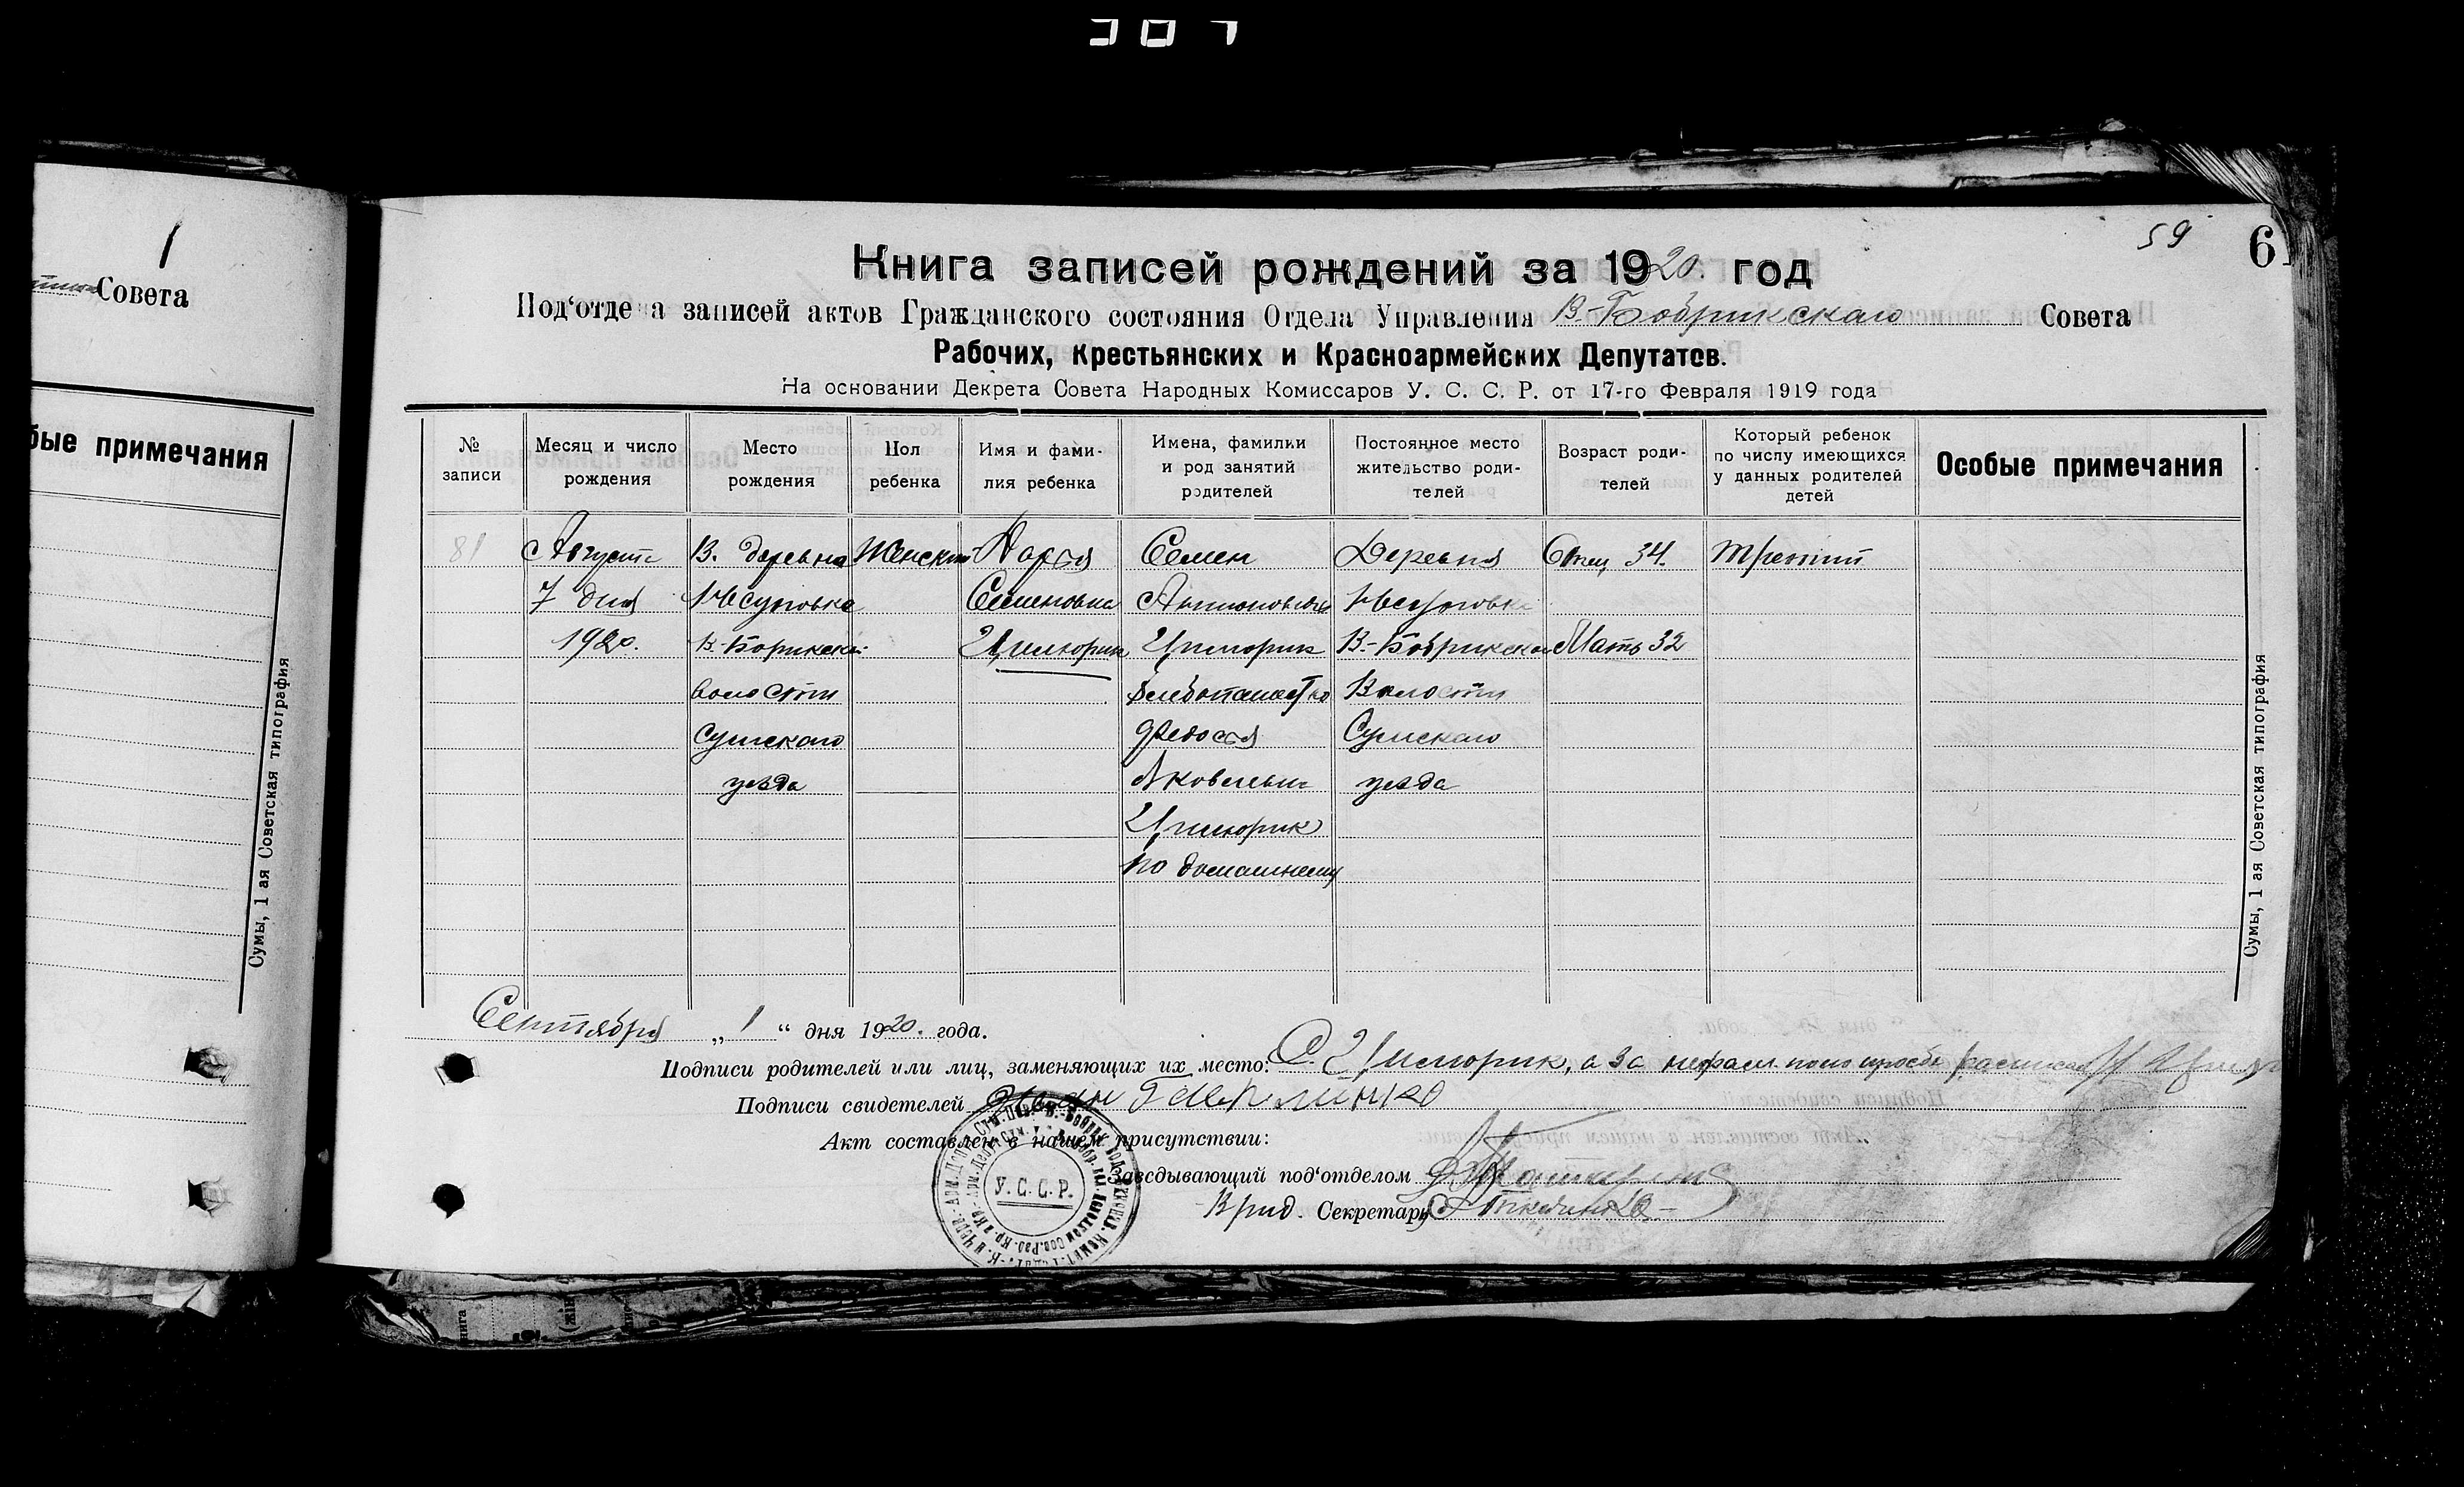 1
Совета
бые примечания
Сумы, 1 ая Советская типография
59
6
Книга записей рождений за 1920. год
Под‘отдела записей актов Гражданского состояния Отдела Управления В.-Бобрикскаго Совета
Рабочих, Крестьянских и Красноармейских Депутатов.
На основании Декрета Совета Народных Комиссаров У. С. С. Р. от 17-го Февраля 1919 года
№ записи
Месяц и число рождения
Место рождения
Пол ребенка
Имя и фамилия ребенка
Имена, фамилии и род занятий родителей
Постоянное место жительство родителей
Возраст родителей
Который ребенок по числу имеющихся у данных родителей детей
Особые примечания
81
Августа
7 дня
1920.
В. деревне
В.-Борикской
волости
Сумскаго
уезда
Женский
Дарья
Семеновна
Циморик
Семен
Циморик
хлебопашество
Федосья
Яковлевна
Циморик
по домашнему
Деревня
В.-Бобрикской
Волости
Сумскаго
уезда
Отец 34.
Мать 32
третий
Сентября „ 1 “ дня 1920. года.
Подписи родителей или лиц, заменяющих их место: С. Циморик, а за
Подписи свидетелей Иван
Акт составлен в нашем присутствии:
Заведывающий под‘отделом
Врид. Секретарь
У. С. С. Р.
Сумы, 1 ая Советская типография